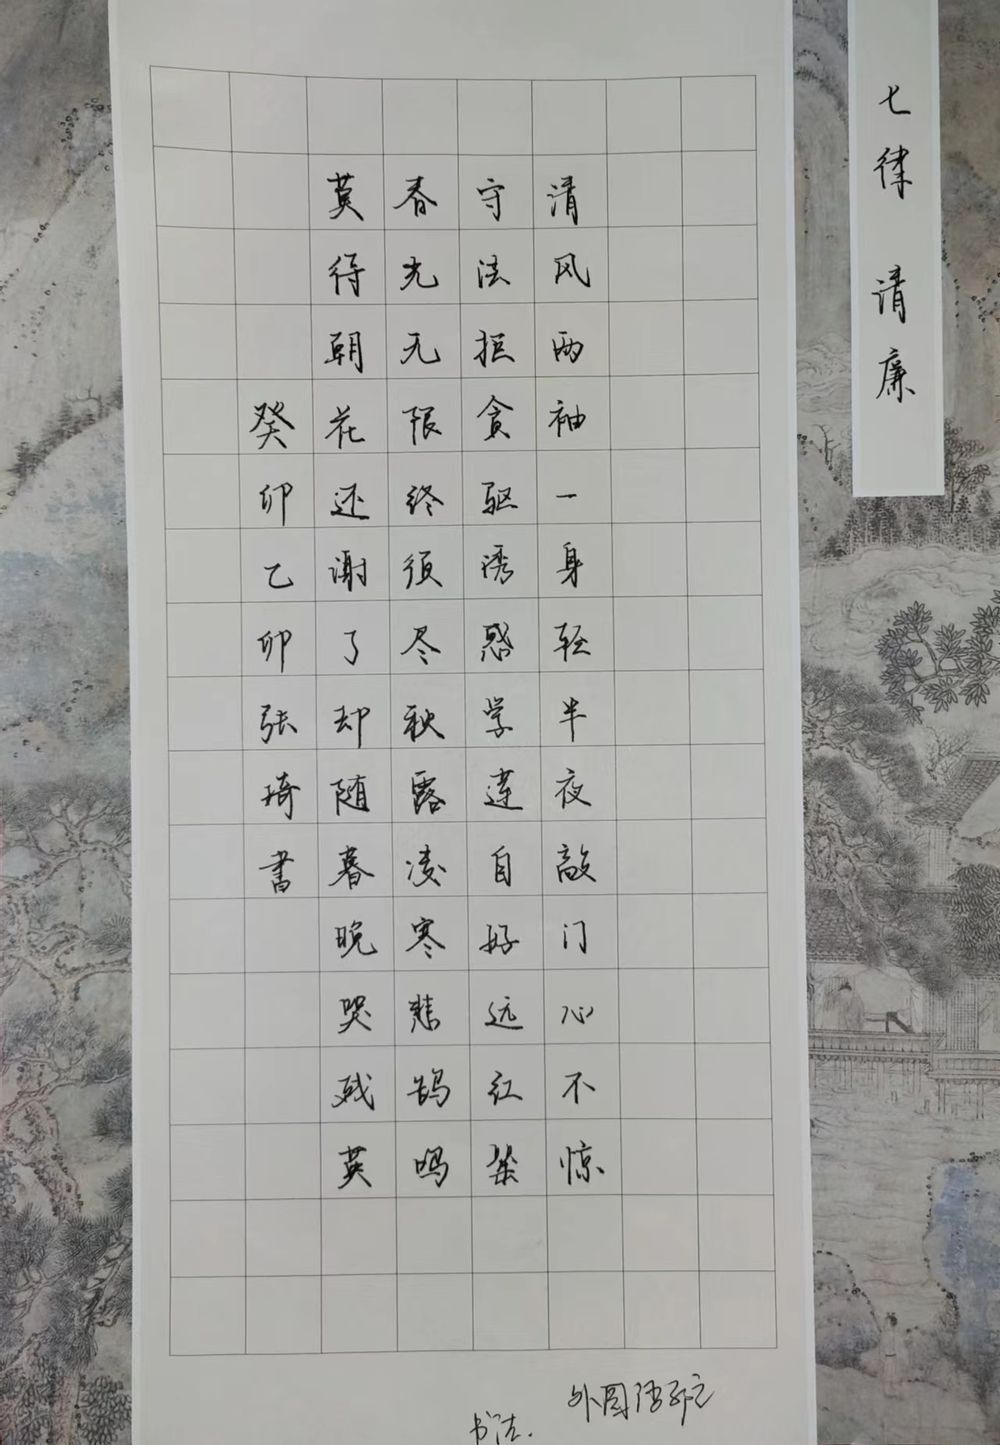 七律 清廉
清风两袖一身轻半夜敲门心不惊
守法拒贪驱诱惑学莲自好远红樱
春光无限终须尽秋露凌寒悲鹄鸣
莫待朝花还谢了却随暮晚哭残英
癸卯乙卯张琦书
外国语
书法.